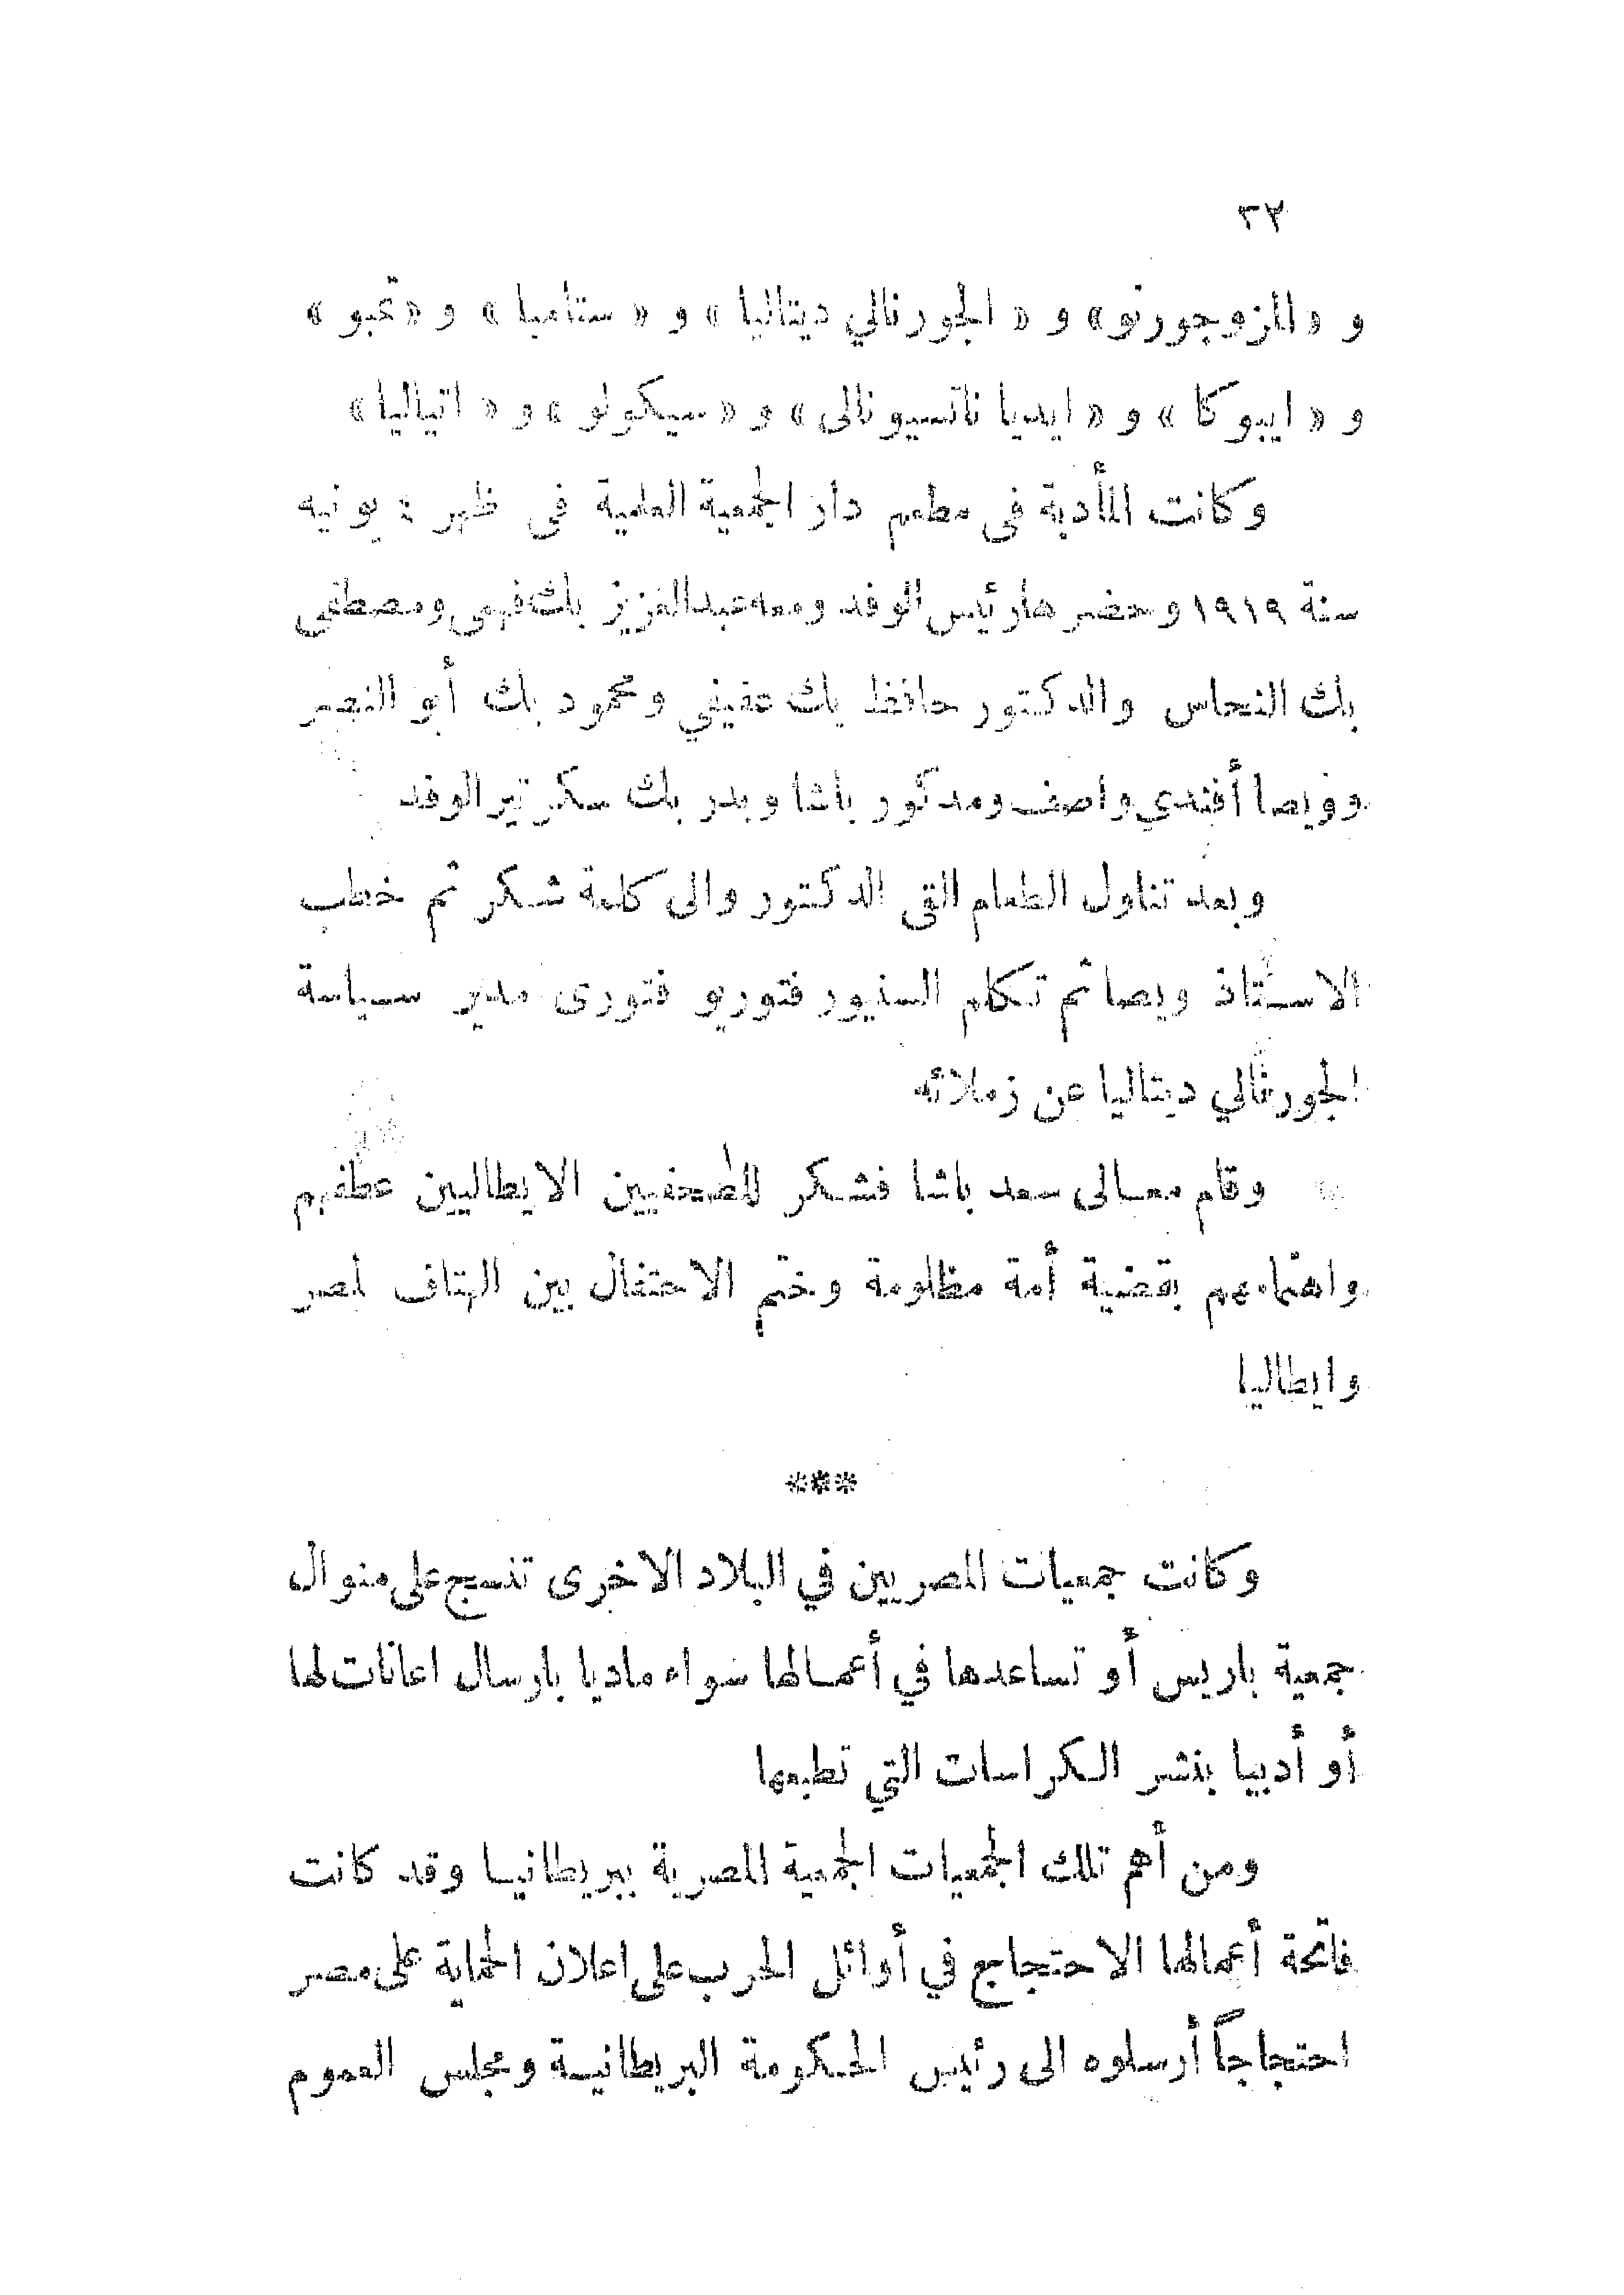 ٣٢
و «المزوجورنو» و « الجورنالي ديتاليا » و « ستامبا » و «تمبو »
و « ايبوكا » و « ايديا ناتسيونالى» و « سيكولو » و « اتياليا»
وكانت المأدبة فى مطعم دار الجمعية العلمية فى ظهر ٤ يونيه
سنة ١٩١٩ وحضرها رئيس الوفد ومعه عبد العزيز بك فهمى ومصطفى
بك النحاس والدكتور حافظ بك عفيفي ومحمود بك أبو النصر
وويصا أفندي واصف ومدكور باشا وبدر بك سكرتير الوفد
وبعد تناول الطعام القى الدكتور والى كلمة شكر ثم خطب
الاستاذ ويصا ثم تكلم السنيور فتوريو فتورى مدير سياسة
الجورنالي ديتاليا عن زملائه
وقام معالى سعد باشا فشكر للصحفيين الايطاليين عطفهم
واهتمامهم بقضية أمة مظلومة وختم الاحتفال بين الهتاف لمصر
وايطاليا
***
وكانت جمعيات المصريين في البلاد الاخرى تنسج على منوال
جمعية باريس أو تساعدها في أعمالها سواء ماديا بارسال اعانات لها
أو أدبيا بنشر الكراسات التي تطبعها
ومن أهم تلك الجمعيات الجمعية المصرية ببريطانيا وقد كانت
فاتحة أعمالها الاحتجاج في أوائل الحرب على اعلان الحماية على مصر
احتجاجاً أرسلوه الى رئيس الحكومة البريطانية ومجلس العموم